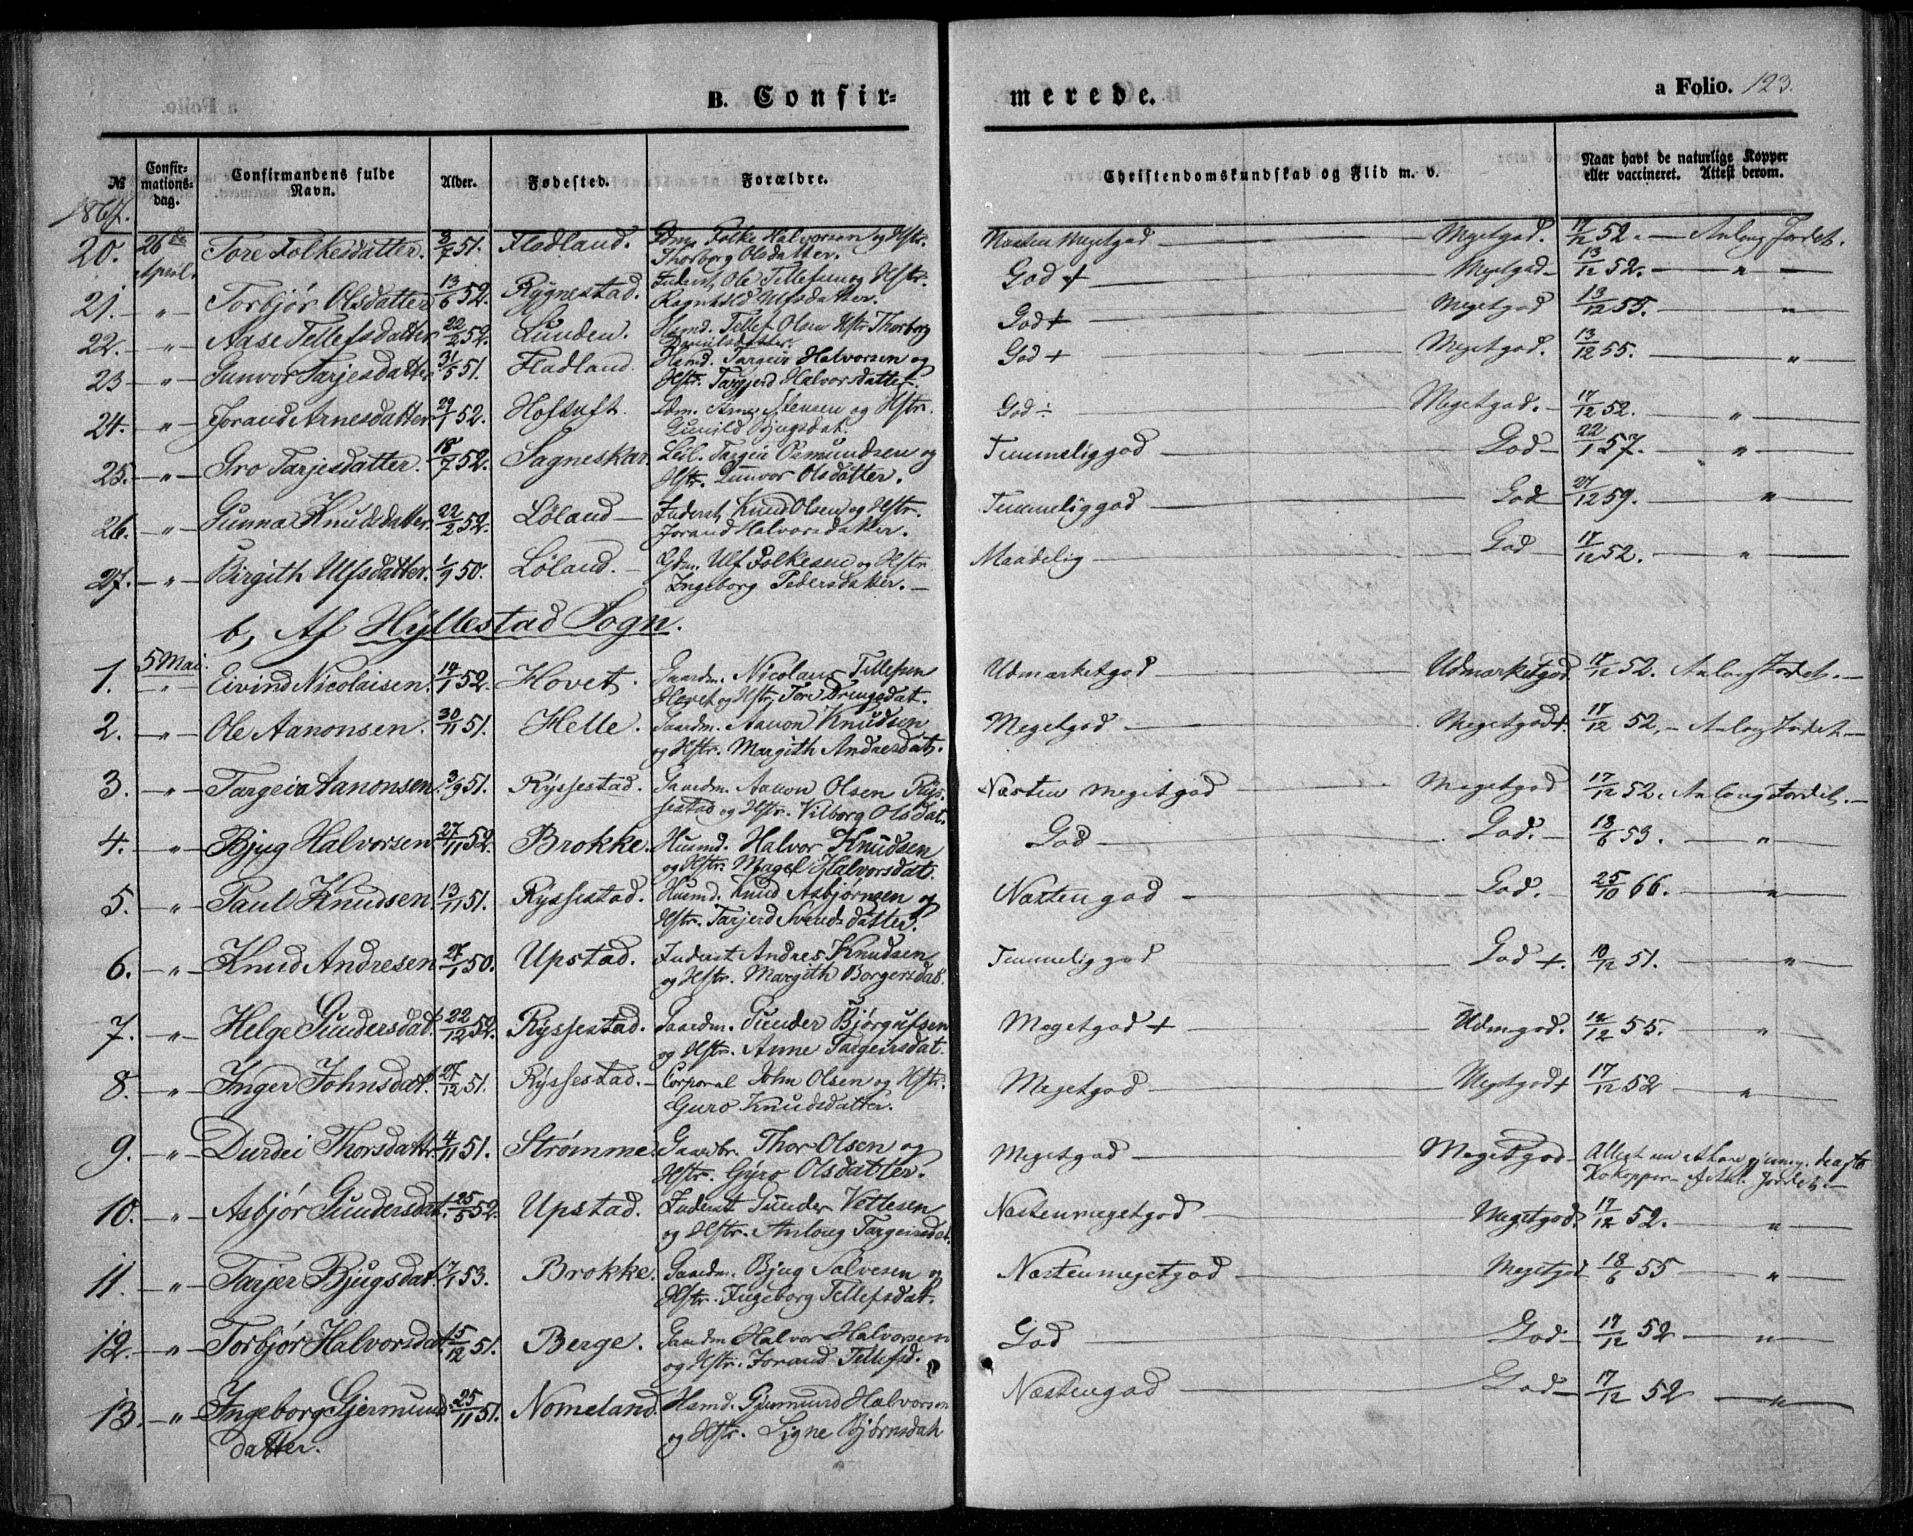 B. Confir-
merede.
a Folio. 123.
№
Confir-
mations-
dag.
Confirmandens fulde
Navn.
Alder.
Fødested.
Forældre.
Christendomskundskab og Flid m. v.
Naar havt de naturlige Kopper
eller vaccineret. Attest derom.
1867.
20. 26de April. Tore Folkesdatter. 3/7 51. Fladland. Gdm. Folke Halvorsen og Hstr.
Thorborg Olsdatter. Næsten Megetgod — Megetgod. 17/12 52. — Anloug Jordet.
21. — " — Torbjør Olsdatter 13/6 52. Rygnestad. Inderst, Ole Tellefsen og Hstr.
Ragnhild Ulfsdatter. God + — Megetgod — 13/12 52. — " —
22. — " — Aase Tellefsdatter 22/2 52. Lunden. Husmd. Tellef Olsen Hstr. Thorborg
God + — Megetgod 13/12 55. "
23 — " — Gunvor Tarjesdatter 31/5 51. Fladland. Husmd. Targeir Halvorsen og
Hstr. Targjerd Halvorsdatter. God + — Megetgod. 13/12 55. "
24. — " — Jorand Arnesdatter 29/1 52. Hoftuft. Gdm. Arne Stensen og Hstr.
Gunild Bjugsdat. God ÷ — Megetgod. — 17/12 52. "
25. — " — Gro Tarjesdatter. 18/7 52. Sagneskar. Leil. Targeir Osmundsen og
Hstr. Gunvor Olsdatter. Temmeliggod — God — 22/1 57. "
26. — " — Gunna Knudsdatter 22/2 52. Løland — Inderst, Knud Olsen og Hstr.
Jorand Halvorsdatter. Temmeliggod — God 27/12 59. "
27. — " — Birgith Ulfsdatter. 1/9 50. Løland. — Gdm. Ulf Folkesen og Hstr
Ingeborg Pedersdatter. — Maadelig — God 17/12 52. "
b, Af Hyllestad Sogn.
1. 5 Mai. — " — Eivind Nicolaisen. 14/1 52. Hovet. Gaardm. Nicolaus Tellefsen
Hovet og Hstr. Tore Drengsdat. Udmærketgod — Udmærketgod 17/12 52. Anloug Jordet. —
2. — " — Ole Aanonsen. 30/11 51. Helle. Gaardm. Aanon Knudsen
og Hstr. Margith Andresdat. Megetgod — Megetgod + 17/12 52, — Anloug Jordet —
3. — " — Targeir Aanonsen. 3/9 51. Ryssestad. Gaardm. Aanon Olsen Rys-
sestad og Hstr. Vilborg Olsdat. Næsten megetgod — Megetgod 17/12 52. Anloug Jordet. —
4. — " — Bjug Halvorsen 27/11 52. Brokke. Husmd. Halvor Knudsen
og Hstr. Magel Halvorsdat. God — God. — 18/6 53. — " —
5. " Paul Knudsen. 13/11 51. Ryssestad. Husmd. Knud Asbjørnsen og
Hstr. Tarjerd Svendsdatter. Næsten god — God. 25/10 66. — " —
6. — " — Knud Andresen 27/1 50. Upstad. Inderst Andres Knudsen
og Hstr. Margith Borgersdat. Temmeliggod — God +. 10/12 51. — " —
7. " Helge Gundersdat. 22/12 52. Ryssestad. Gaardm. Gunder Bjørgufsen
og Hstr. Anne Targeirsdat. Megetgod + — Udmgod. 12/12 55. "
8. " Inger Johnsdat. 27/12 51. Ryssestad. — Corporal John Olsen og Hstr.
Guro Knudsdatter. Megetgod — Megetgod + 17/12 52 — " —
9. — " — Durdei Thorsdatter 4/11 51. Strømme. Gaardbr. Thor Olsen og
Hstr. Gyro Olsdatter. Megetgod — Megetgod —
Kokopper
10. — " — Asbjør Gundersdat. 25/5 52. Upstad. Inderst Gunder Vetlesen
og Hstr. Anloug Targeirsdat. Næsten megetgod — Megetgod 17/12 52. — " —
11. " Tarjer Bjugsdat. 17/1 53. Brokke. Gaardm. Bjug Salvesen og
Hstr. Ingeborg Tellefsdat. Næsten megetgod — Megetgod 18/6 55 — " —
12. — " — Torbjør Halvorsdat. 15/12 51. Berge. Gaardm Halvor Halvorsen
og Hstr. Jorand Tellefsd. God — God — 17/12 52 — " —
13. — " — Ingeborg Gjermund- 25/11 51. Nomeland. Husmd. Gjermund Halvorsen
datter. og Hstr. Signe Bjørnsdat Næsten god — God — 17/12 52 — " —